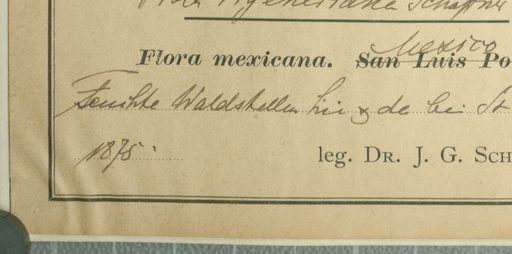 Schaffner
Mexico
Flora mexicana. San Luis Po
Feuchte Waldstellen hie & da bei St
1875.
leg. DR. J. G. SCH